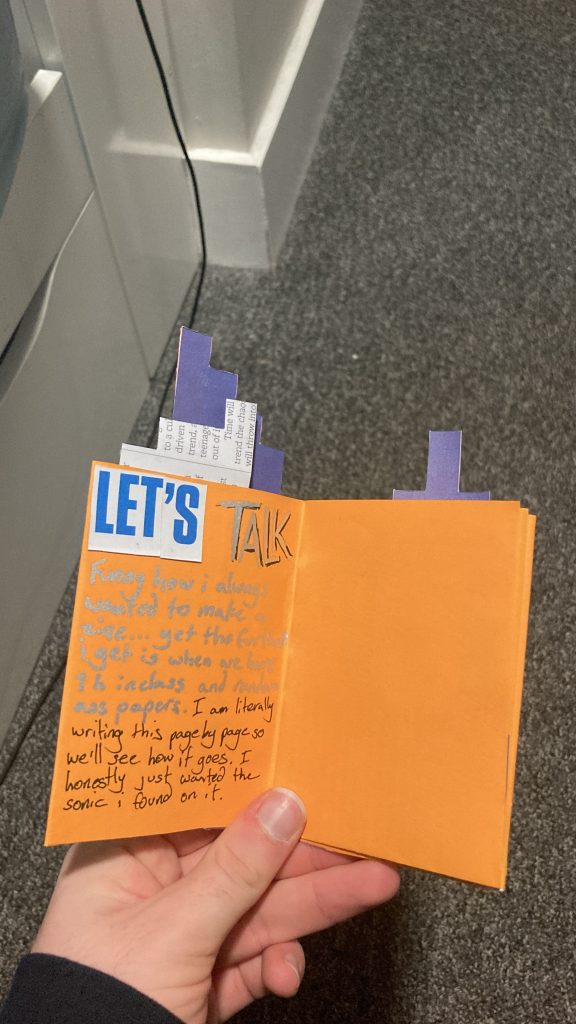 to a cu
driven
trend, a
teenage
out of i
Time will
trend the chao
will throw into
LET'S TALK
Funny how i always
wanted to make a
zine... yet the furthest
i get is when we have
in class and random
ass papers. I am literally
writing this page by page so
we'll see how it goes. I
honestly just wanted the
sonic i found on it.